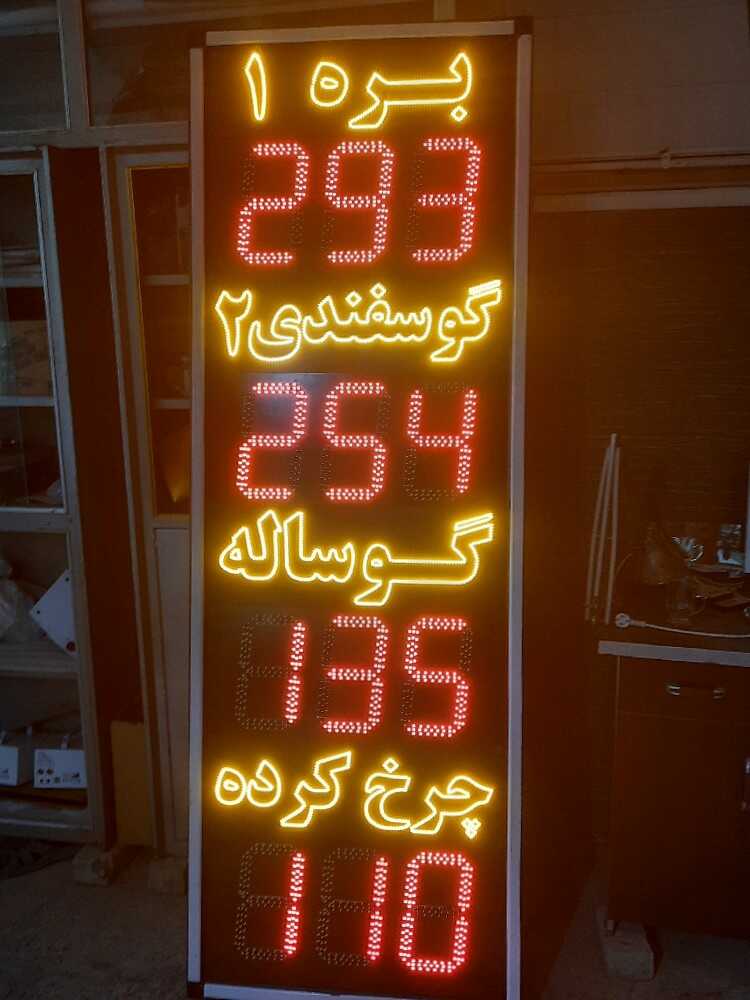 بره ۱
293
گوسفندی۲
254
گوساله
135
چرخ کرده
110